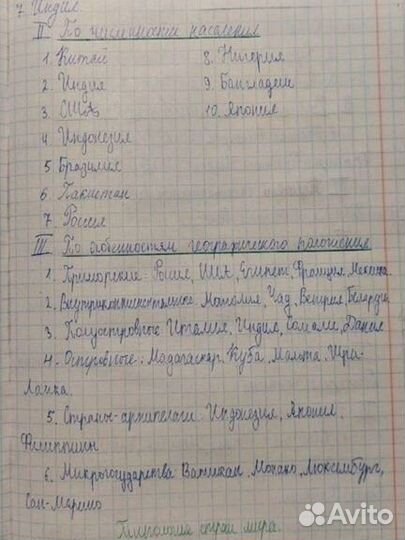 7. Индия
II По численности населения
1. Китай 8. Нигерия
2. Индия 9. Бангладеш
3. США 10. Япония
4 Индонезия
5 Бразилия
6 Пакистан
7 Россия
III По особенностям географического положения
1. Приморские: Россия, США, Египет, Франция, Мексика.
2. Внутриконтинентальные: Монголия, Чад, Венгрия,
3. Полуостровные Италия, Индия, Сомали, Дания
4. Островные: Мадагаскар, Куба, Мальта, Шри-
Ланка.
5. Страны-архипелаги: Индонезия, Япония,
Филиппины
6. Микрогосударства: Ватикан, Монако, Люксембург,
Сан-Марино
Типология стран мира.
Avito